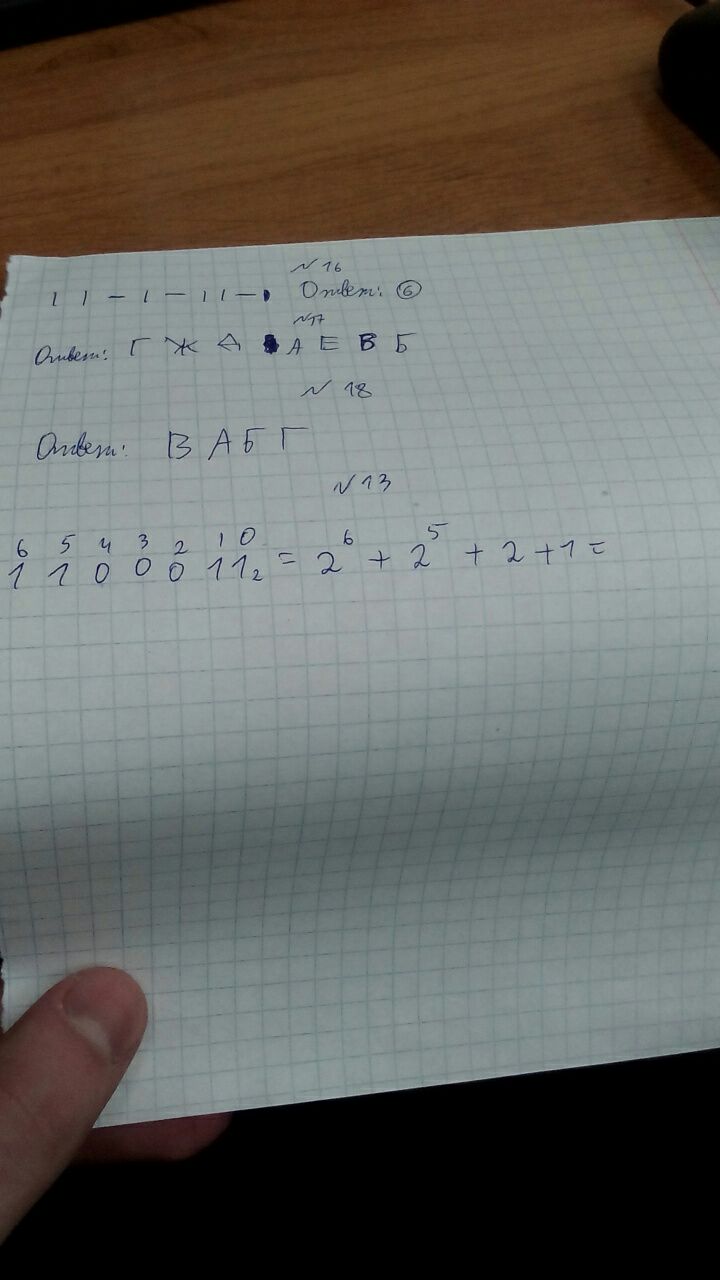 № 16
1 1 – 1 – 1 1 – Ответ: 6
№17
Ответ: Г Ж Д А Е В Б
№ 18
Ответ: В А Б Г
№ 13
6 5 4 3 2 1 0
1 1 0 0 0 1 1₂ = 2⁶ + 2⁵ + 2 + 1 =